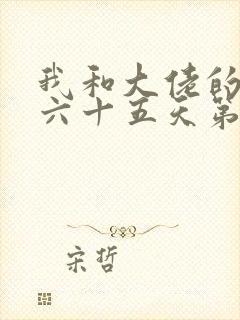 我和大佬的
六十五天第
宋哲